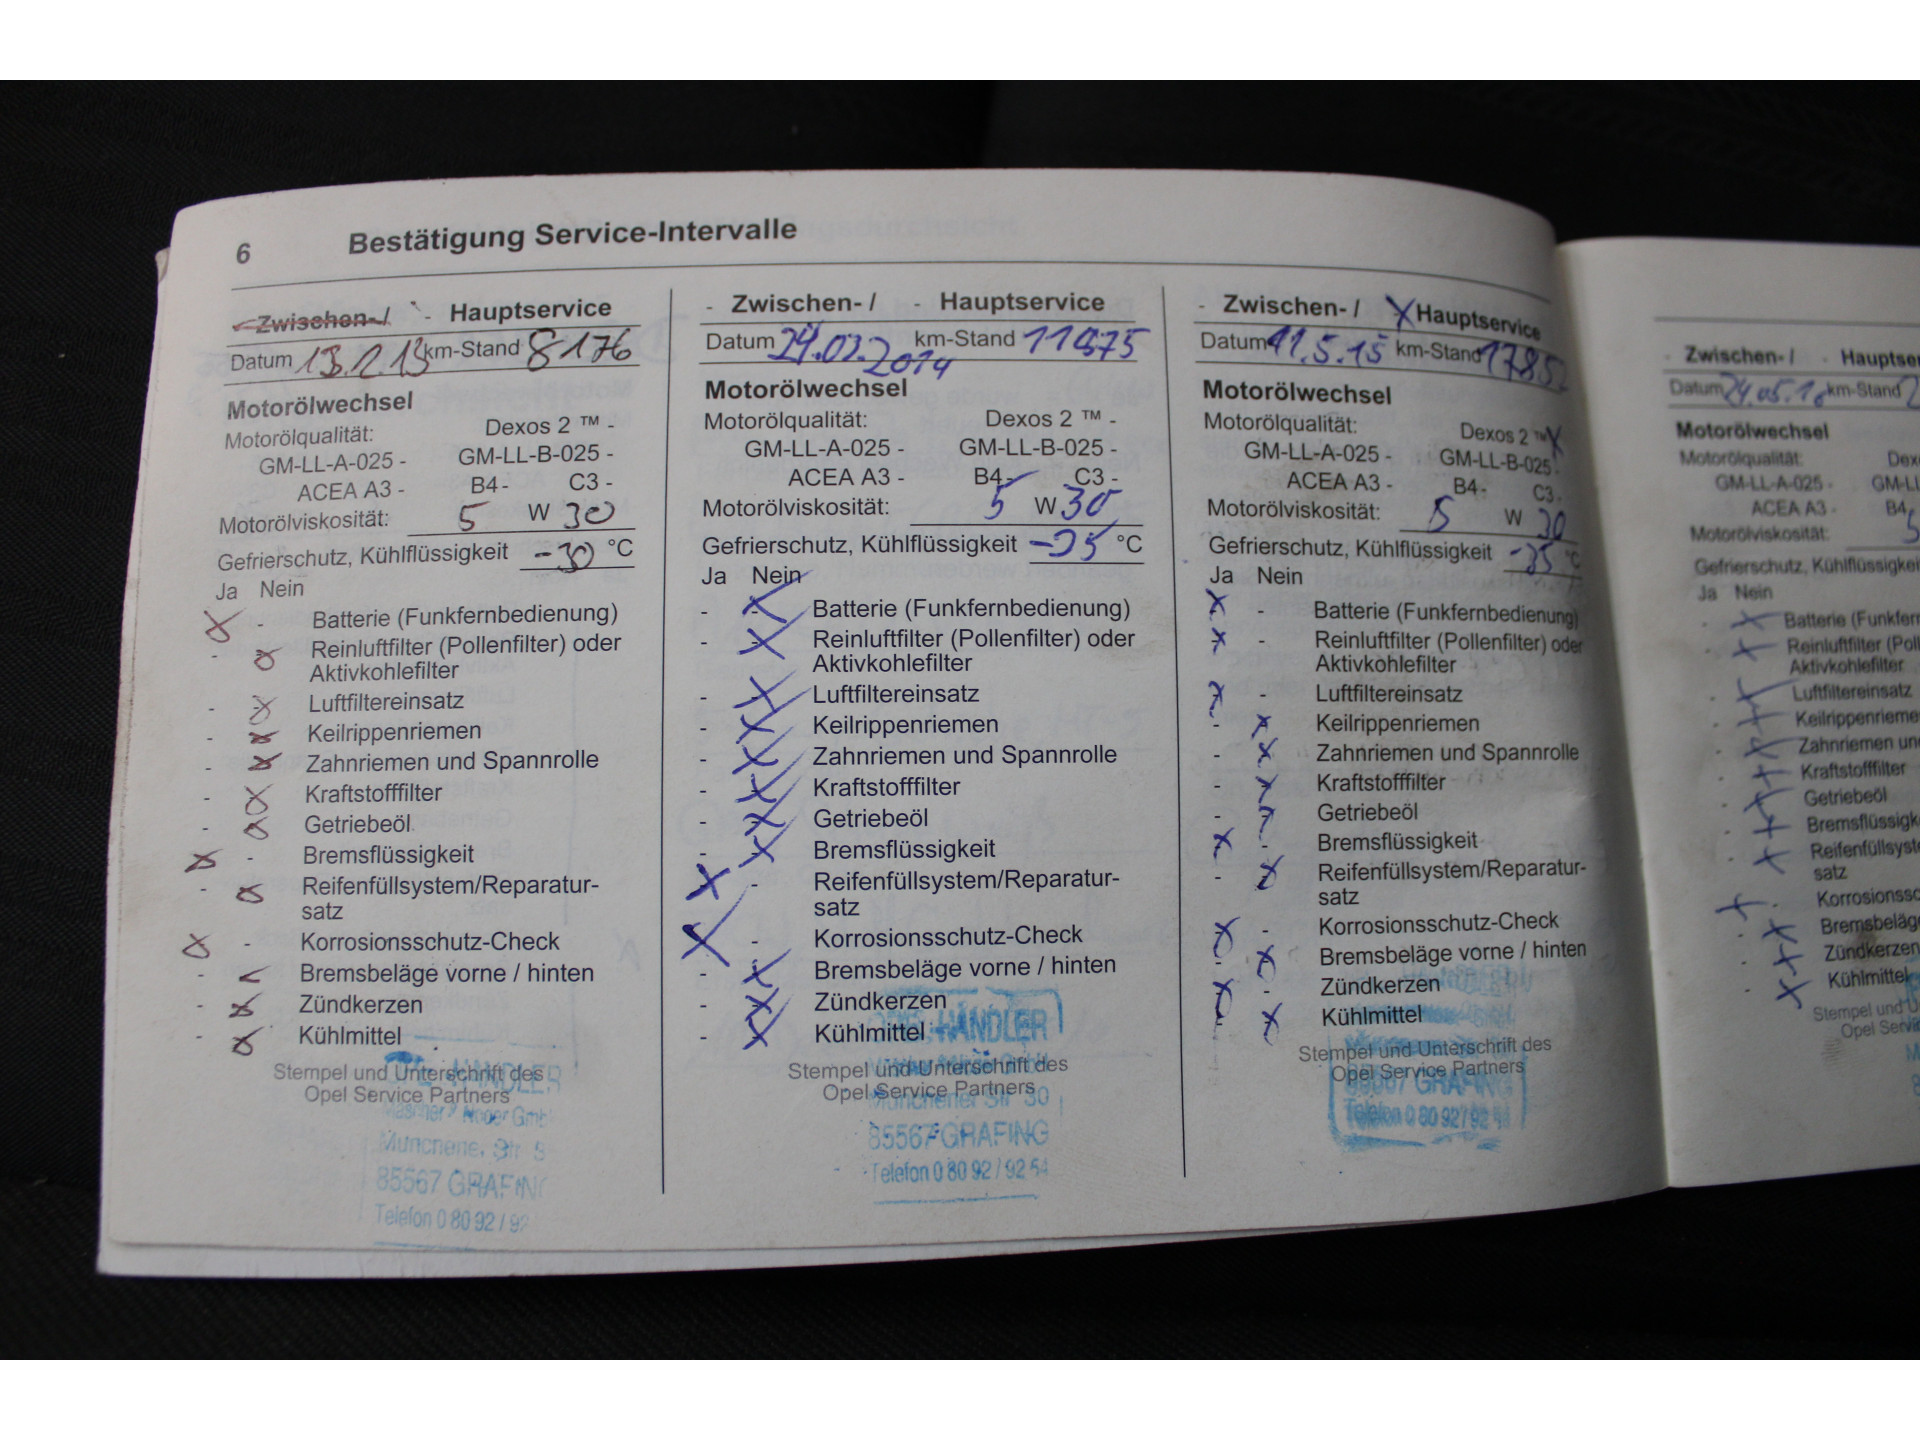 6 Bestätigung Service-Intervalle
Zwischen- / - Hauptservice
Datum 13.2.13 km-Stand 8176
Motorölwechsel
Motorölqualität: Dexos 2 ™ -
GM-LL-A-025 - GM-LL-B-025 -
ACEA A3 - B4 - C3 -
Motorölviskosität: 5 W 30
Gefrierschutz, Kühlflüssigkeit -30 °C
Ja Nein
X - Batterie (Funkfernbedienung)
- X Reinluftfilter (Pollenfilter) oder
Aktivkohlefilter
- X Luftfiltereinsatz
- X Keilrippenriemen
- X Zahnriemen und Spannrolle
- X Kraftstofffilter
- X Getriebeöl
X - Bremsflüssigkeit
- X Reifenfüllsystem/Reparatur-
satz
X - Korrosionsschutz-Check
- Bremsbeläge vorne / hinten
- X Zündkerzen
- X Kühlmittel
Stempel und Unterschrift des
Opel Service Partners
HÄNDLER
85567 GRAFING
Telefon 0 80 92 / 92
- Zwischen- / - Hauptservice
Datum 24.03.2014 km-Stand 11975
Motorölwechsel
Motorölqualität: Dexos 2 ™ -
GM-LL-A-025 - GM-LL-B-025 -
ACEA A3 - B4 - C3 -
Motorölviskosität: 5 W 30
Gefrierschutz, Kühlflüssigkeit -35 °C
Ja Nein
- X Batterie (Funkfernbedienung)
- X Reinluftfilter (Pollenfilter) oder
Aktivkohlefilter
- X Luftfiltereinsatz
- X Keilrippenriemen
- X Zahnriemen und Spannrolle
- X Kraftstofffilter
- X Getriebeöl
- X Bremsflüssigkeit
X - Reifenfüllsystem/Reparatur-
satz
X - Korrosionsschutz-Check
- X Bremsbeläge vorne / hinten
- X Zündkerzen
- X Kühlmittel
Stempel und Unterschrift des
Opel Service Partners
HÄNDLER
Münchener Str 30
85567 GRAFING
Telefon 0 80 92 / 92 54
- Zwischen- / X Hauptservice
Datum 11.5.15 km-Stand 17852
Motorölwechsel
Motorölqualität: Dexos 2 ™ X
GM-LL-A-025 - GM-LL-B-025 -
ACEA A3 - B4 - C3 -
Motorölviskosität: 5 W 30
Gefrierschutz, Kühlflüssigkeit -35 °C
Ja Nein
X - Batterie (Funkfernbedienung)
X - Reinluftfilter (Pollenfilter) oder
Aktivkohlefilter
X - Luftfiltereinsatz
- X Keilrippenriemen
- X Zahnriemen und Spannrolle
- X Kraftstofffilter
- X Getriebeöl
X - Bremsflüssigkeit
- X Reifenfüllsystem/Reparatur-
satz
X - Korrosionsschutz-Check
- X Bremsbeläge vorne / hinten
X - Zündkerzen
- X Kühlmittel
Stempel und Unterschrift des
Opel Service Partners
85567 GRAFING
Telefon 0 80 92 / 92 54
- Zwischen- / - Hauptser
Datum 24.05.16 km-Stand 2
Motorölwechsel
Motorölqualität: Dex
GM-LL-A-025 - GM-LL
ACEA A3 - B4
Motorölviskosität: 5
Gefrierschutz, Kühlflüssigkei
Ja Nein
- X Batterie (Funkfern
- X Reinluftfilter (Poll
Aktivkohlefilter
- X Luftfiltereinsatz
- X Keilrippenrieme
- X Zahnriemen un
- X Kraftstofffilter
- X Getriebeöl
- X Bremsflüssigk
- X Reifenfüllsyst
satz
X - Korrosionssc
- X Bremsbeläg
- X Zündkerzen
- X Kühlmittel
Stempel und U
Opel Servi